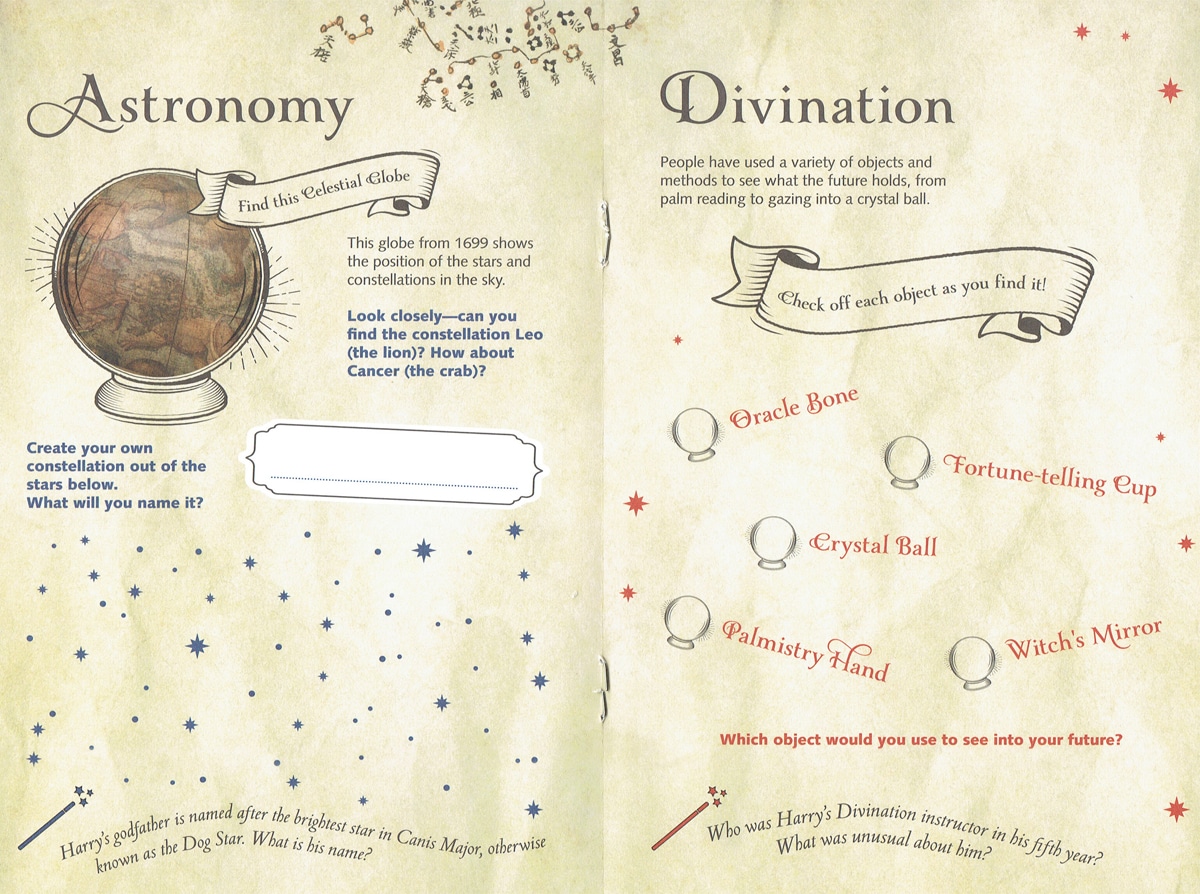 天棓
文昌
相
太陽首
天槍
Astronomy
Find this Celestial Globe
This globe from 1699 shows
the position of the stars and
constellations in the sky.
Look closely—can you
find the constellation Leo
(the lion)? How about
Cancer (the crab)?
Create your own
constellation out of the
stars below.
What will you name it?
Harry's godfather is named after the brightest star in Canis Major, otherwise
known as the Dog Star. What is his name?
Divination
People have used a variety of objects and
methods to see what the future holds, from
palm reading to gazing into a crystal ball.
Check off each object as you find it!
Oracle Bone
Fortune-telling Cup
Crystal Ball
Palmistry Hand
Witch's Mirror
Which object would you use to see into your future?
Who was Harry's Divination instructor in his fifth year?
What was unusual about him?